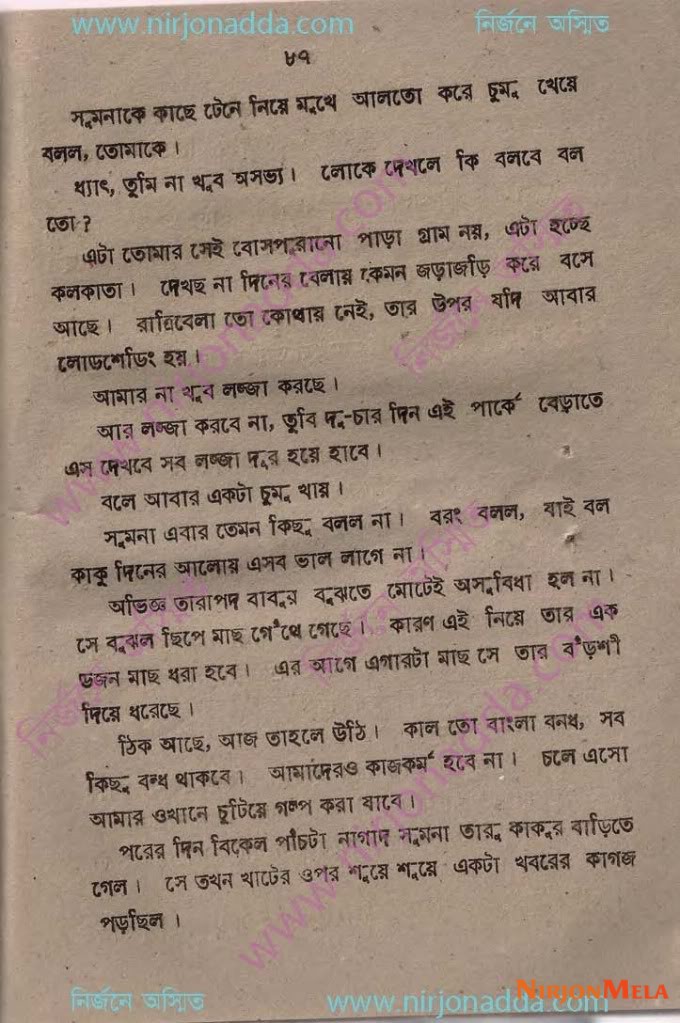 www.nirjonadda.com নির্জনে অস্মিত
৮৭
সুমনাকে কাছে টেনে নিয়ে মুখে আলতো করে চুমু খেয়ে
বলল, তোমাকে।
ধ্যাৎ, তুমি না খুব অসভ্য। লোকে দেখলে কি বলবে বল
তো?
এটা তোমার সেই বোসপুরানো পাড়া গ্রাম নয়, এটা হচ্ছে
কলকাতা। দেখছ না দিনের বেলায় কেমন জড়াজড়ি করে বসে
আছে। রাত্রিবেলা তো কোথায় নেই, তার উপর যদি আবার
লোডশেডিং হয়।
আমার না খুব লজ্জা করছে।
আর লজ্জা করবে না, তুবি দু-চার দিন এই পার্কে বেড়াতে
এস দেখবে সব লজ্জা দুর হয়ে হাবে।
বলে আবার একটা চুমু খায়।
সুমনা এবার তেমন কিছু বলল না। বরং বলল, যাই বল
কাকু দিনের আলোয় এসব ভাল লাগে না।
অভিজ্ঞ তারাপদ বাবুর বুঝতে মোটেই অসুবিধা হল না।
সে বুঝল ছিপে মাছ গেঁথে গেছে। কারণ এই নিয়ে তার এক
ডজন মাছ ধরা হবে। এর আগে এগারটা মাছ সে তার বঁড়শী
দিয়ে ধরেছে।
ঠিক আছে, আজ তাহলে উঠি। কাল তো বাংলা বনধ, সব
কিছু বন্ধ থাকবে। আমাদেরও কাজকর্ম হবে না। চলে এসো
আমার ওখানে চুটিয়ে গল্প করা যাবে।
পরের দিন বিকেল পাঁচটা নাগাদ সুমনা তারু কাকুর বাড়িতে
গেল। সে তখন খাটের ওপর শুয়ে শুয়ে একটা খবরের কাগজ
পড়ছিল।
www.nirjonadda.com
নির্জনে অস্মিত
www.nirjonadda.com
নির্জনে অস্মিত
NIRJONMELA
নির্জনে অস্মিত www.nirjonadda.com